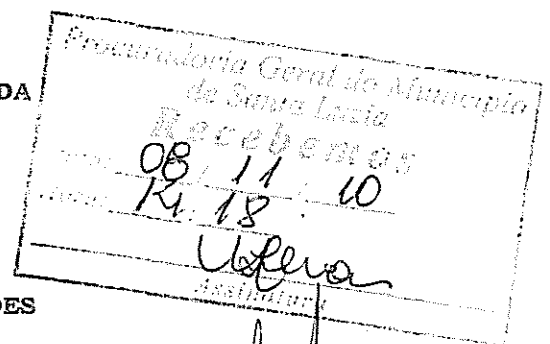 DA
Procuradoria Geral do Município
de Santa Luzia
Recebemos
08 / 11 / 10
14:18
Assinatura
DES